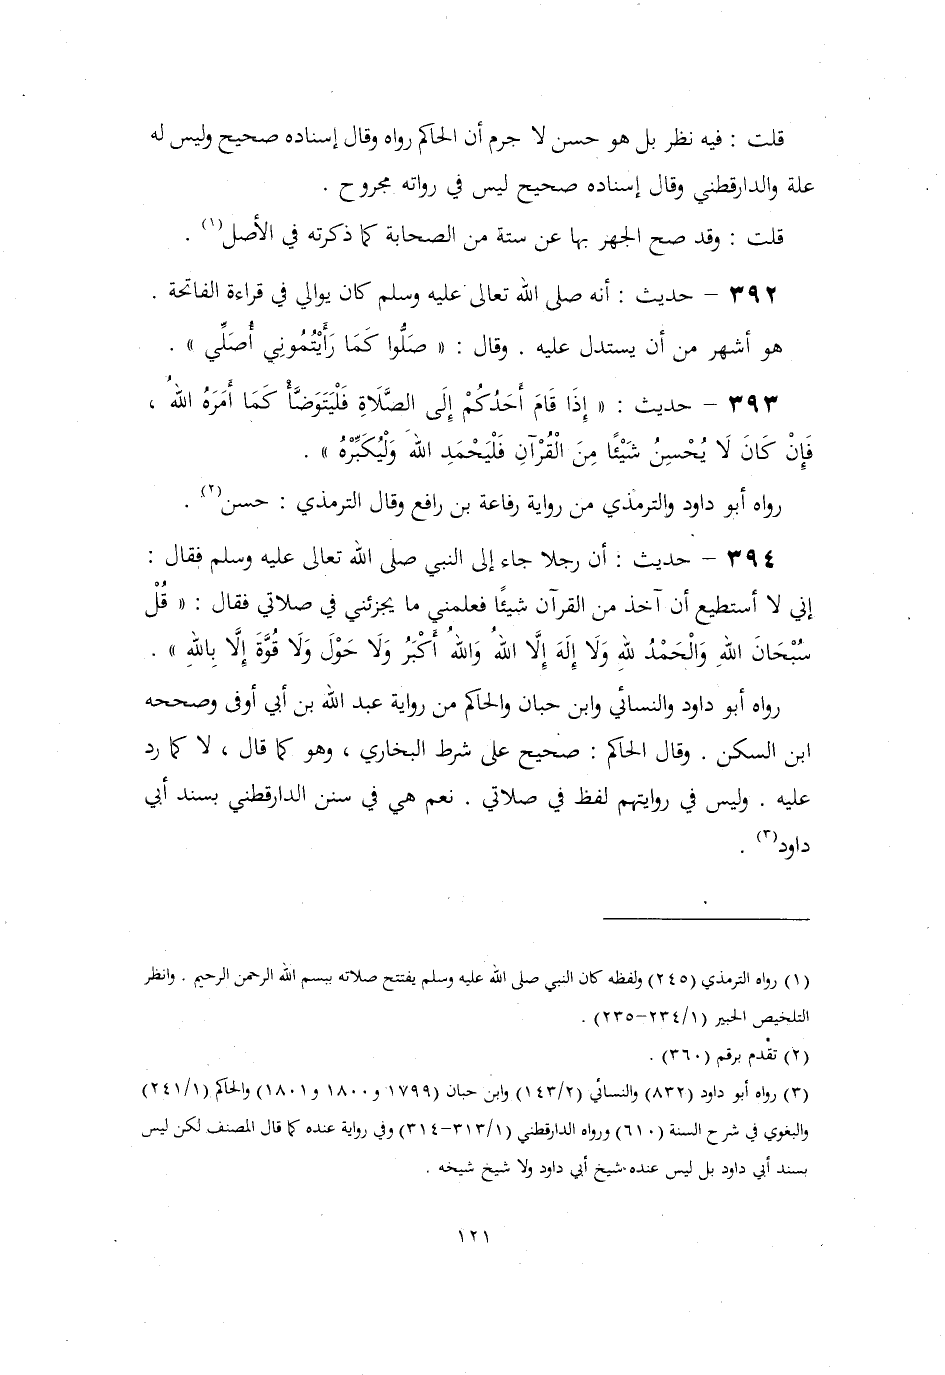 قلت : فيه نظر بل هو حسن لا جرم أن الحاكم رواه وقال إسناده صحيح وليس له
علة والدارقطني وقال إسناده صحيح ليس في رواته مجروح .
قلت : وقد صح الجهر بها عن ستة من الصحابة كما ذكرته في الأصل(١) .
٣٩٢ – حديث : أنه صلى الله تعالى عليه وسلم كان يوالي في قراءة الفاتحة .
هو أشهر من أن يستدل عليه . وقال : « صَلُّوا كَمَا رَأَيْتُمُونِي أُصَلِّي » .
٣٩٣ – حديث : « إِذَا قَامَ أَحَدُكُمْ إِلَى الصَّلَاةِ فَلْيَتَوَضَّأْ كَمَا أَمَرَهُ اللهُ ،
فَإِنْ كَانَ لَا يُحْسِنُ شَيْئًا مِنَ الْقُرْآنِ فَلْيَحْمَدِ اللهَ وَلْيُكَبِّرْهُ » .
رواه أبو داود والترمذي من رواية رفاعة بن رافع وقال الترمذي : حسن(٢) .
٣٩٤ – حديث : أن رجلا جاء إلى النبي صلى الله تعالى عليه وسلم فقال :
إني لا أستطيع أن آخذ من القرآن شيئًا فعلمني ما يجزئني في صلاتي فقال : « قُلْ
سُبْحَانَ اللهِ وَالْحَمْدُ للهِ وَلَا إِلَهَ إِلَّا اللهُ وَاللهُ أَكْبَرُ وَلَا حَوْلَ وَلَا قُوَّةَ إِلَّا بِاللهِ » .
رواه أبو داود والنسائي وابن حبان والحاكم من رواية عبد الله بن أبي أوفى وصححه
ابن السكن . وقال الحاكم : صحيح على شرط البخاري ، وهو كما قال ، لا كما رد
عليه . وليس في روايتهم لفظ في صلاتي . نعم هي في سنن الدارقطني بسند أبي
داود(٣) .
(١) رواه الترمذي (٢٤٥) ولفظه كان النبي صلى الله عليه وسلم يفتتح صلاته ببسم الله الرحمن الرحيم . وانظر
التلخيص الحبير (١/٢٣٤–٢٣٥) .
(٢) تقدم برقم (٣٦٠) .
(٣) رواه أبو داود (٨٣٢) والنسائي (١٤٣/٢) وابن حبان (١٧٩٩ و ١٨٠٠ و ١٨٠١) والحاكم (٢٤١/١)
والبغوي في شرح السنة (٦١٠) ورواه الدارقطني (٣١٣/١–٣١٤) وفي رواية عنده كما قال المصنف لكن ليس
بسند أبي داود بل ليس عنده شيخ أبي داود ولا شيخ شيخه .
١٢١